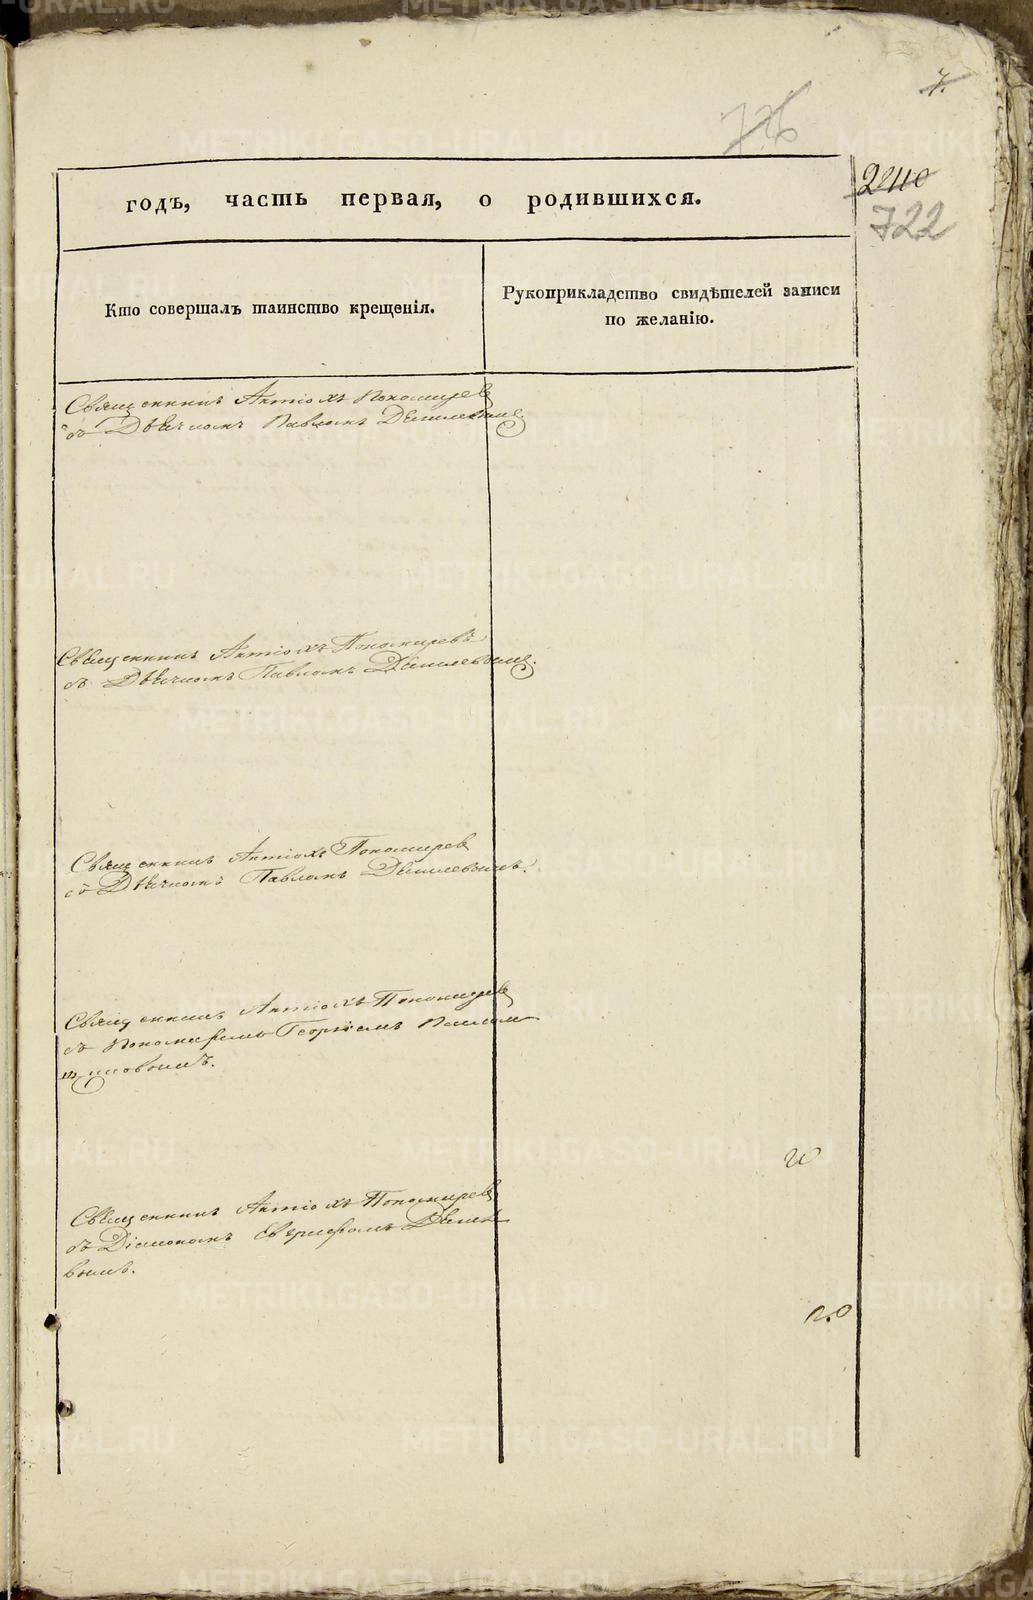 7.
726
2110
722
годъ, часть первая, о родившихся.
Кто совершалъ таинство крещенія.
Рукоприкладство свидѣтелей записи
по желанію.
Священникъ Антіохъ Пономарев
съ Дьячкомъ Павломъ
Священникъ Антіохъ Пономаревъ
съ Дьячкомъ Павломъ
Священникъ Антіохъ Пономарев
съ Дьячкомъ Павломъ
Священникъ Антіохъ Пономарев
съ Пономаремъ Георгіемъ
Священникъ Антіохъ Пономарев
съ Діакономъ
METRIKI.GASO-URAL.RU